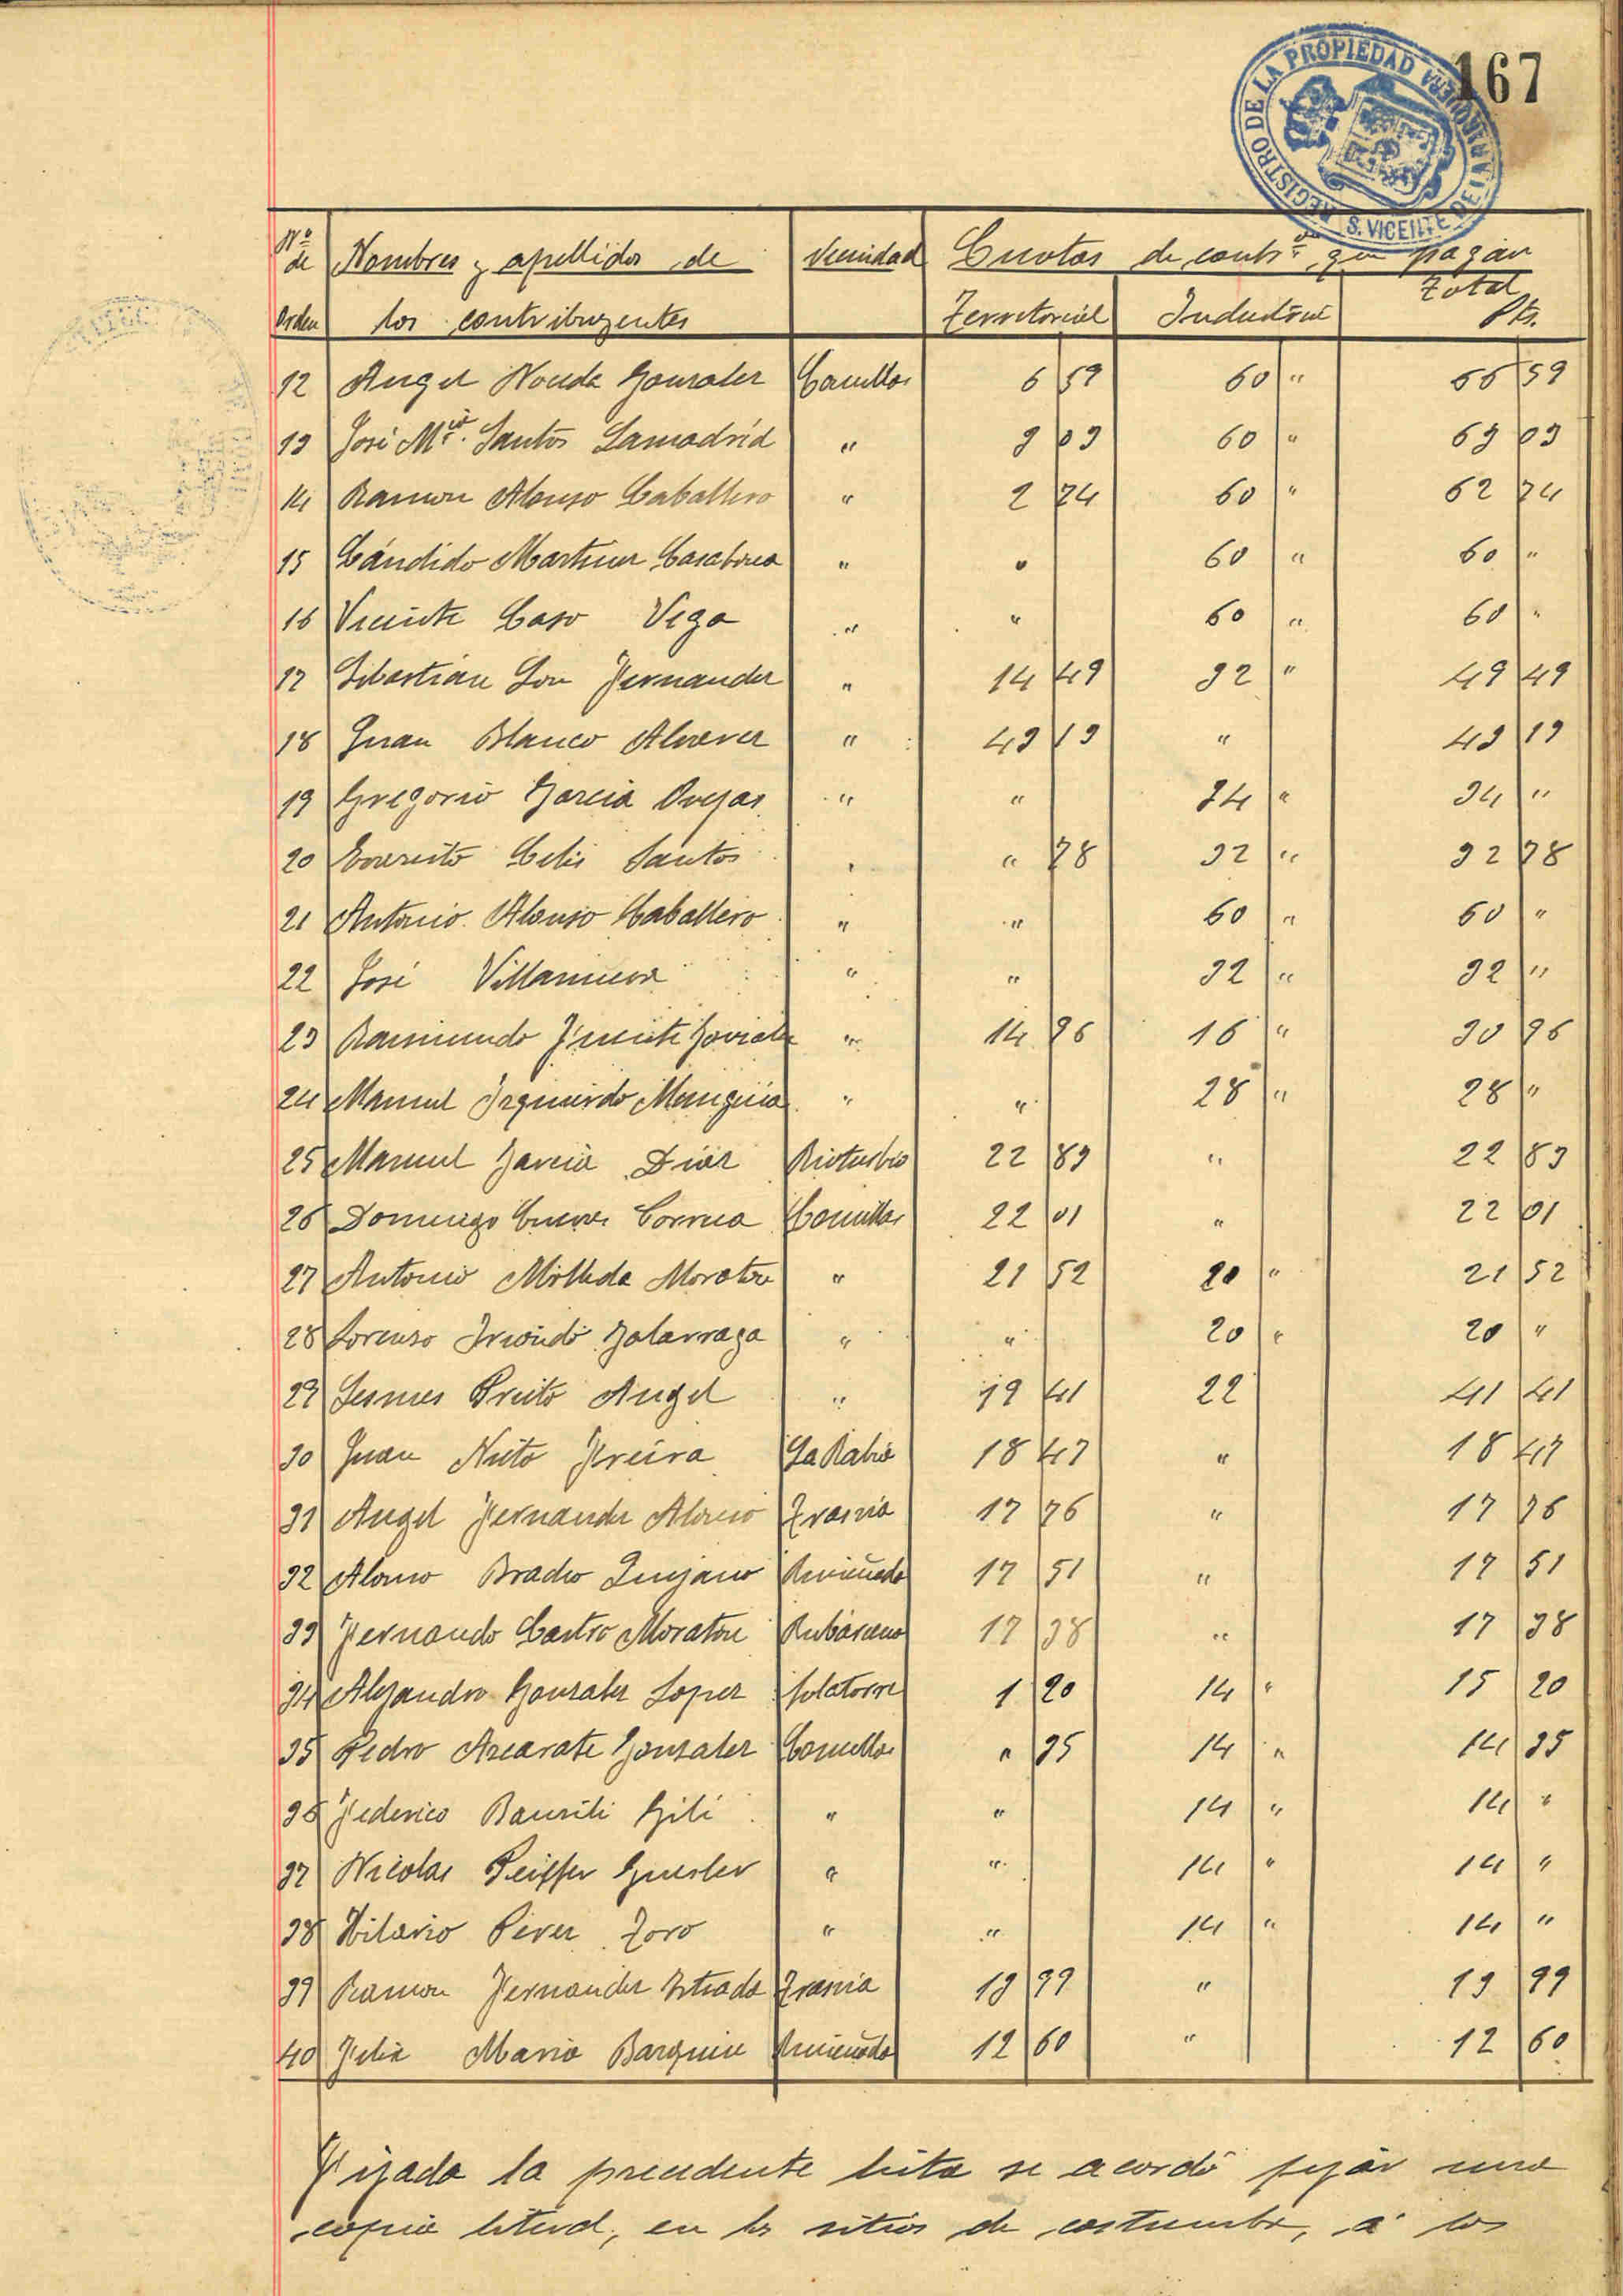 167
REGISTRO DE LA PROPIEDAD
S. VICENTE DE LA BARQUERA
Nº de Orden Nombres y apellidos de los contribuyentes Vecindad Cuotas de contrⁿ que pagan
Territorial Industrial Total Pts.
12 Angel Noceda Gonzalez Comillas 6 59 60 " 66 59
13 José Mría. Santos Lamadrid " 9 09 60 " 69 09
14 Ramon Alonso Caballero " 2 74 60 " 62 74
15 Cándido Martinez Casabona " " 60 " 60 "
16 Vicente Caso Vega " " 60 " 60 "
17 Sebastián Son Fernandez " 14 49 32 " 49 49
18 Juan Blanco Alvarez " 43 13 " 43 13
19 Gregorio Garcia Ovejas " " 34 " 34 "
20 Evaristo Celis Santos " " 78 32 " 32 78
21 Antonio Alonso Caballero " " 60 " 60 "
22 José Villanueva " " 32 " 32 "
23 Raimundo Fuente " 14 96 16 " 30 96
24 Manuel Izquierdo Munguia " " 28 " 28 "
25 Manuel Garcia Diaz Rioturbio 22 83 " 22 83
26 Domingo Cueva Correa Comillas 22 01 " 22 01
27 Antonio Molleda Moraton " 21 52 20 " 21 52
28 Lorenzo Iriondo Galarraga " " 20 " 20 "
29 Lesmes Prieto Angel " 19 41 22 41 41
30 Juan Nieto Freira La Rabia 18 47 " 18 47
31 Angel Fernandez Alonso Trasvia 17 76 " 17 76
32 Alonso Bracho Quijano Ruiseñada 17 51 " 17 51
33 Fernando Castro Moraton Rubárcena 17 38 " 17 38
34 Alejandro Gonzalez Lopez Solatorre 1 20 14 " 15 20
35 Pedro Azcarate Gonzalez Comillas " 35 14 " 14 35
36 Federico Bausili Gili " " 14 " 14 "
37 Nicolas Peiffer " " 14 " 14 "
38 Hilario Perez Toro " " 14 " 14 "
39 Ramon Fernandez Estrada Trasvia 13 99 " 13 99
40 Felix Maria Barquin Ruiseñada 12 60 " 12 60
Fijada la precedente lista se acordó fijar una
copia literal, en los sitios de costumbre, á los